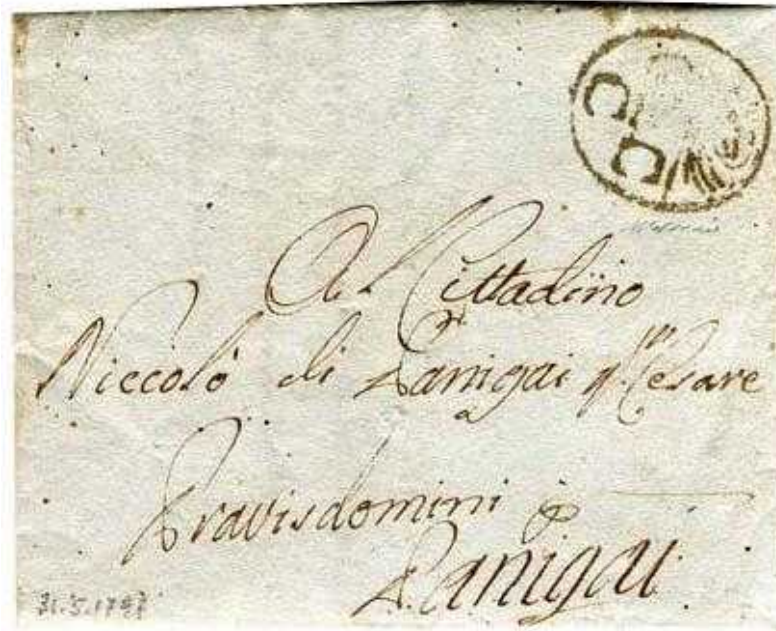 C C
Al Cittadino
Niccolò di Panigai q.m Cesare
Pravisdomini per
Panigai
31.5.1797